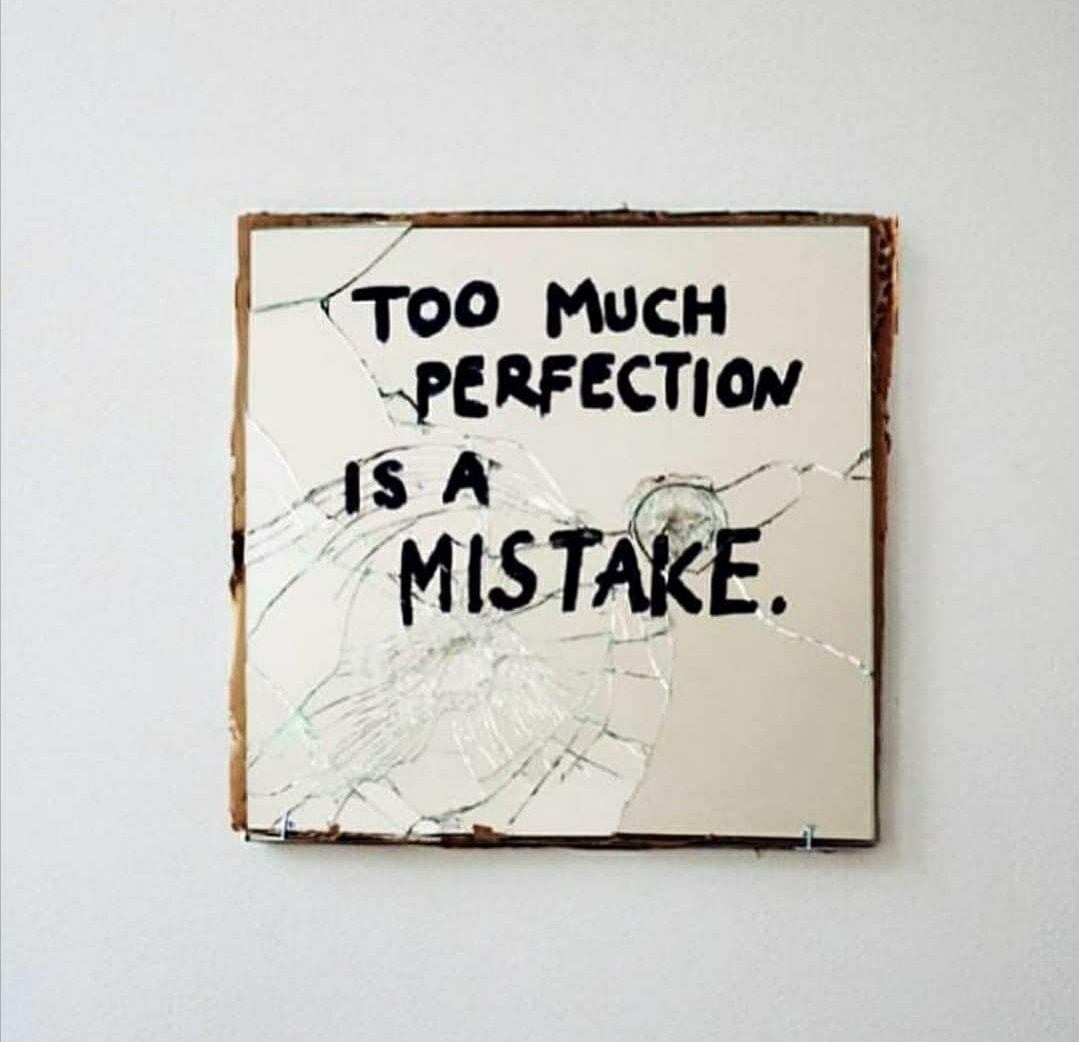 TOO MUCH
PERFECTION
IS A
MISTAKE.